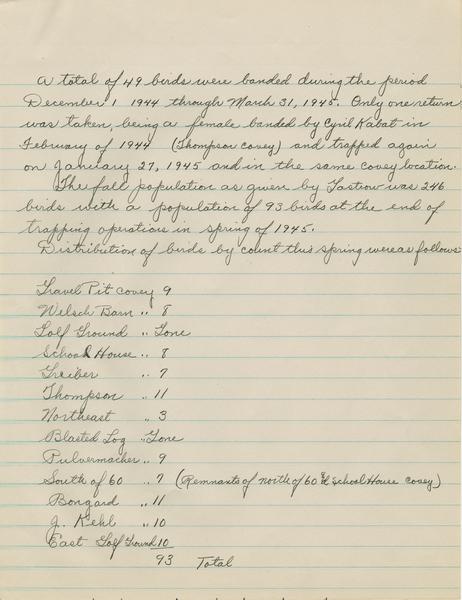 A total of 49 birds were banded during the period
December 1 1944 through March 31, 1945. Only one return
was taken, being a female banded by Cyril Kabat in
February of 1944 (Thompson covey) and trapped again
on January 27, 1945 and in the same covey location.
The fall population as given by Gastrow was 246
birds with a population of 93 birds at the end of
trapping operations in spring of 1945.
Distribution of birds by count this spring were as follows
Gravel Pit covey 9
Welsch Barn " 8
Golf Ground " Gone
School House " 8
Greiber " 7
Thompson " 11
Northeast " 3
Blasted Log " Gone
Pulvermacher " 9
South of 60 " 7 (Remnants of north of 60 & School House covey)
Bongard " 11
J. Kehl " 10
East Golf Ground 10
93 Total